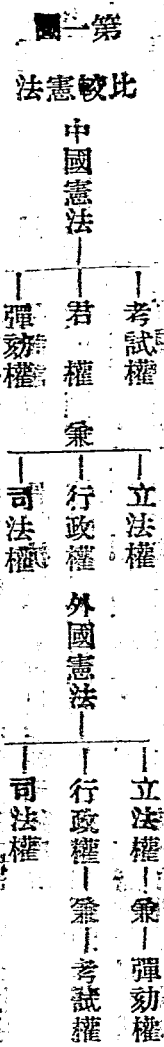 第一圖
比較憲法
中國憲法
考試權
君權兼
彈劾權
立法權
行政權
司法權
外國憲法
立法權兼彈劾權
行政權兼考試權
司法權